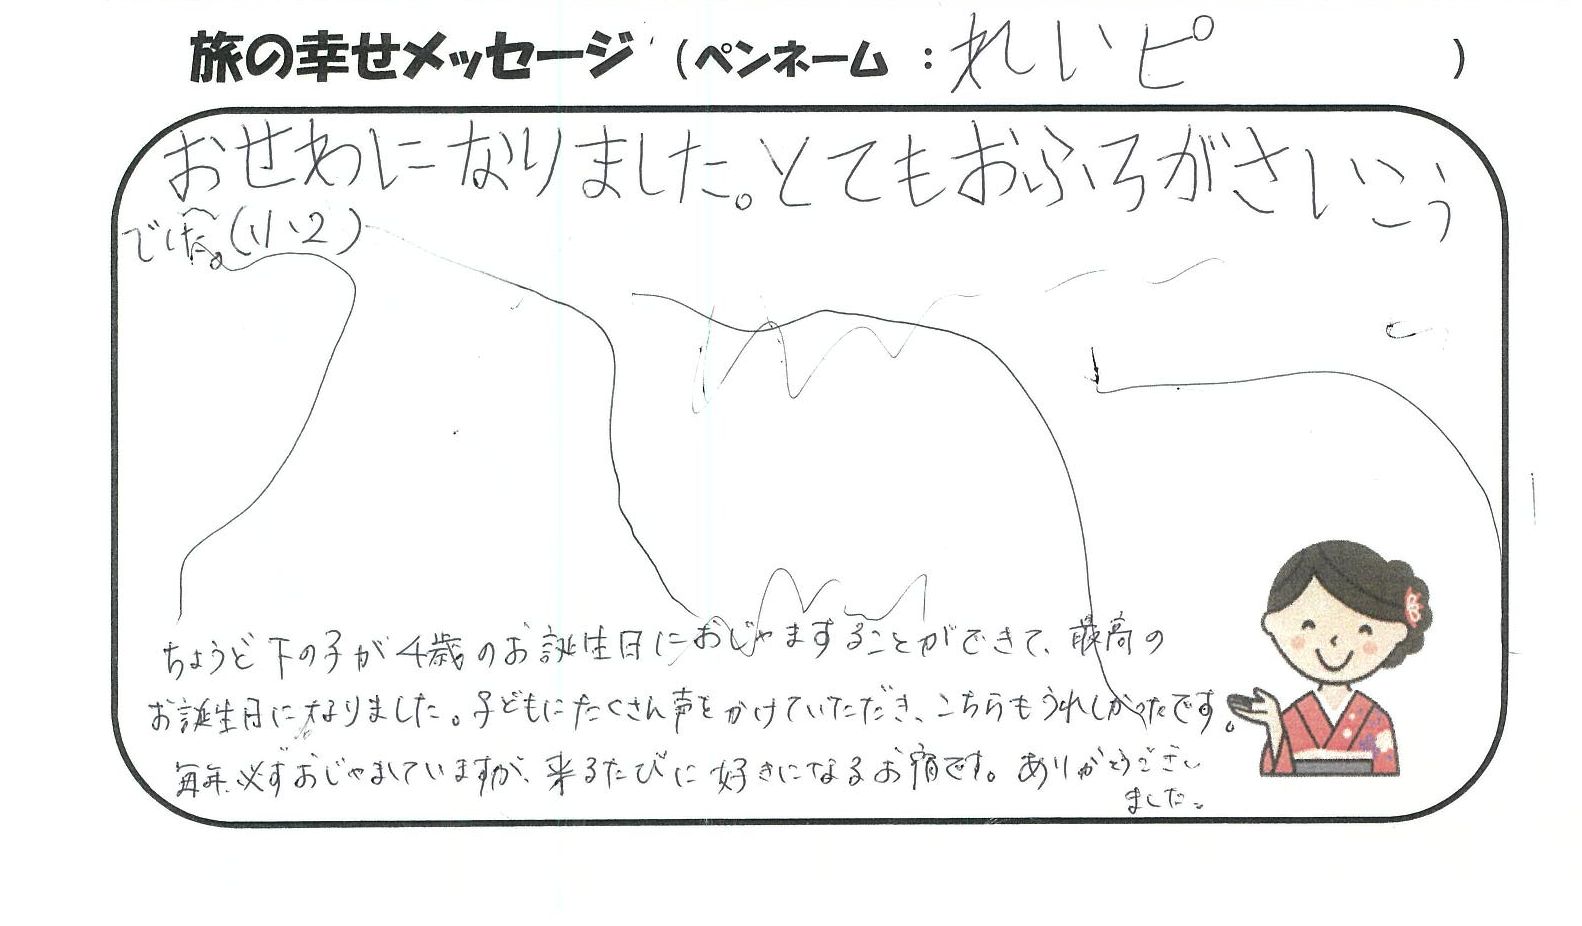 旅の幸せメッセージ（ペンネーム：れいピ）
おせわになりました。とてもおふろがさいこう
でした。(小2)
ちょうど下の子が4歳のお誕生日におじゃますることができて、最高の
お誕生日になりました。子どもにたくさん声をかけていただき、こちらもうれしかったです。
毎年必ずおじゃましていますが、来るたびに好きになるお宿です。ありがとうござい
ました。